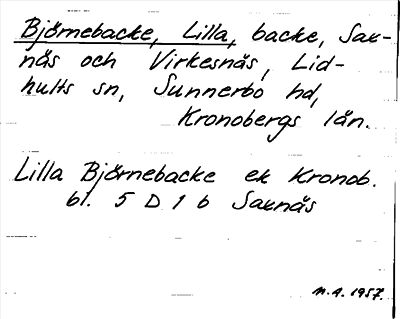 Björnebacke, Lilla, backe, Sax-
näs och Virkesnäs, Lid-
hults sn, Sunnerbo hd,
Kronobergs län.
Lilla Björnebacke ek Kronob.
bl. 5 D 1 b Saxnäs
M.A. 1957.